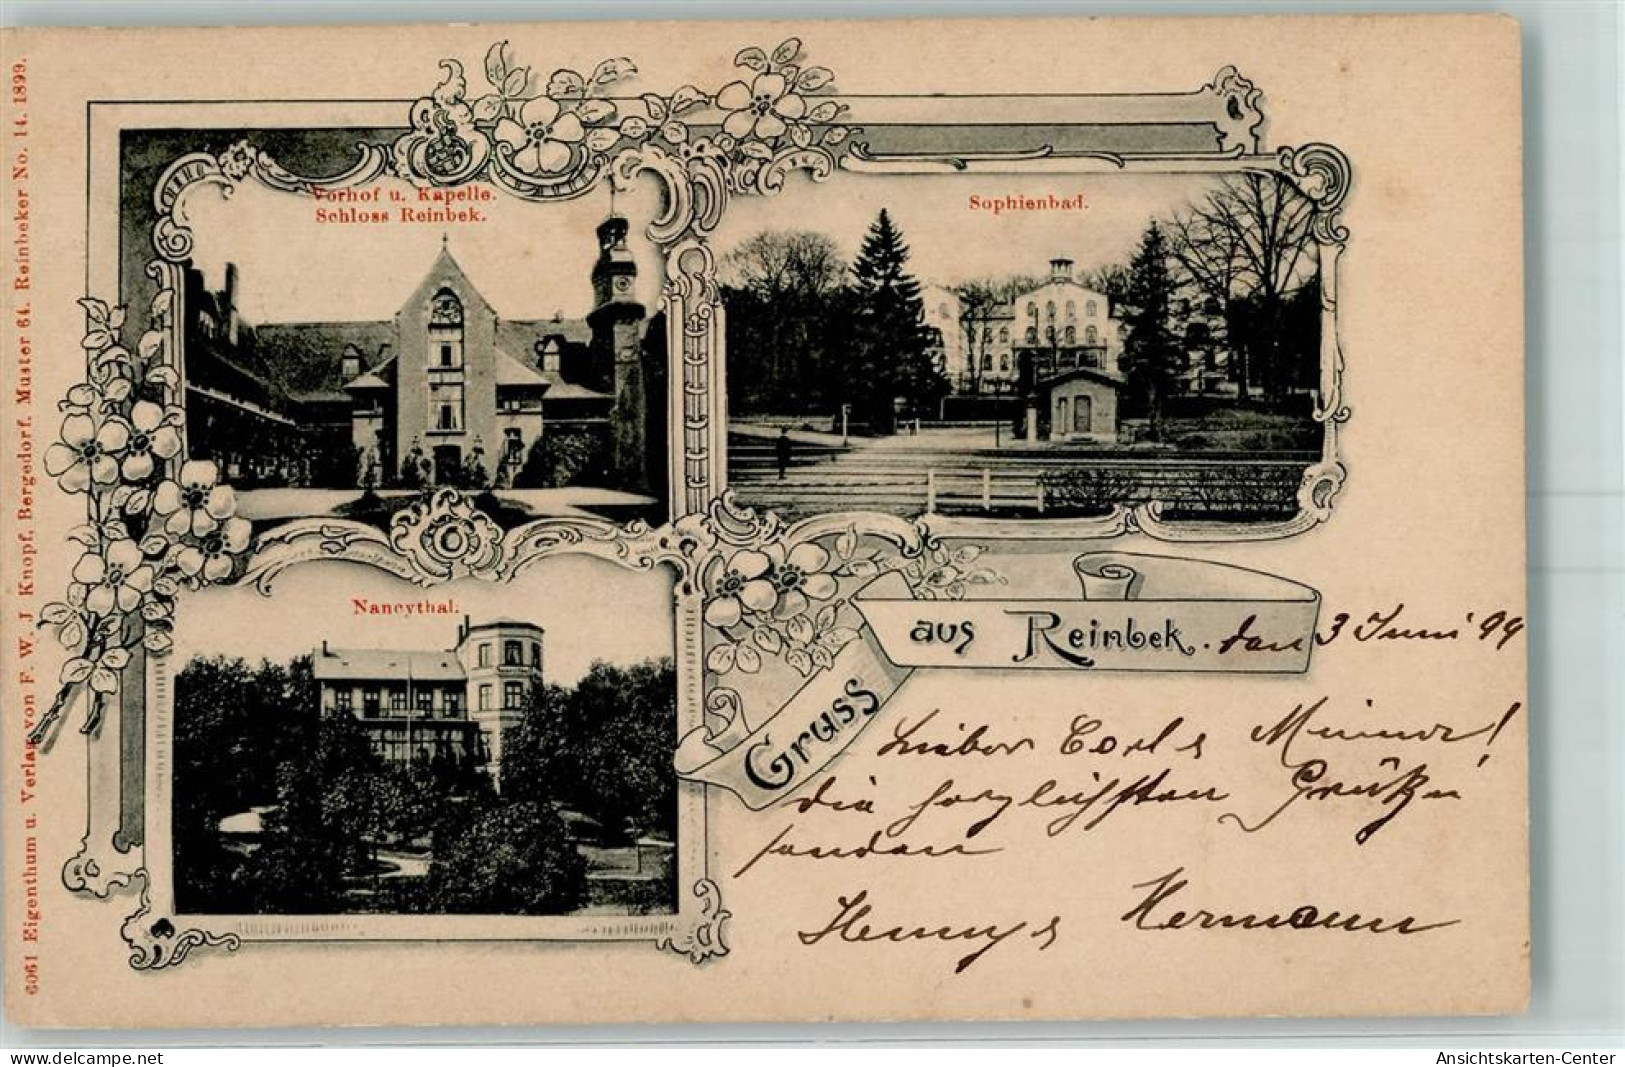 6061 Eigenthum u. Verlag von F. W. J Knopf, Bergedorf. Muster 64. Reinbeker No. 14. 1899.
Vorhof u. Kapelle.
Schloss Reinbek.
Sophienbad.
Nancythal.
Gruss aus Reinbek. den 3 Juni 99
Lieber Carl & Minna!
die herzlichsten Grüße
senden
Henny & Hermann
delcampe.net
Ansichtskarten-Center